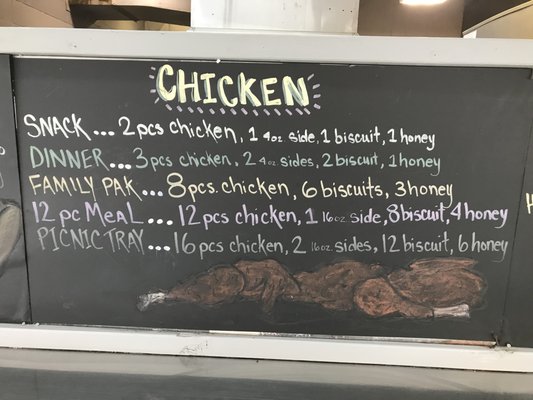 CHICKEN
SNACK... 2pcs chicken, 1 4oz side, 1 biscuit, 1 honey
DINNER... 3pcs chicken, 2 4oz sides, 2 biscuit, 1 honey
FAMILY PAK... 8pcs. chicken, 6 biscuits, 3 honey
12 pc MeaL... 12pcs chicken, 1 16oz side, 8 biscuit, 4 honey
PICNIC TRAY... 16pcs chicken, 2 16oz sides, 12 biscuit, 6 honey